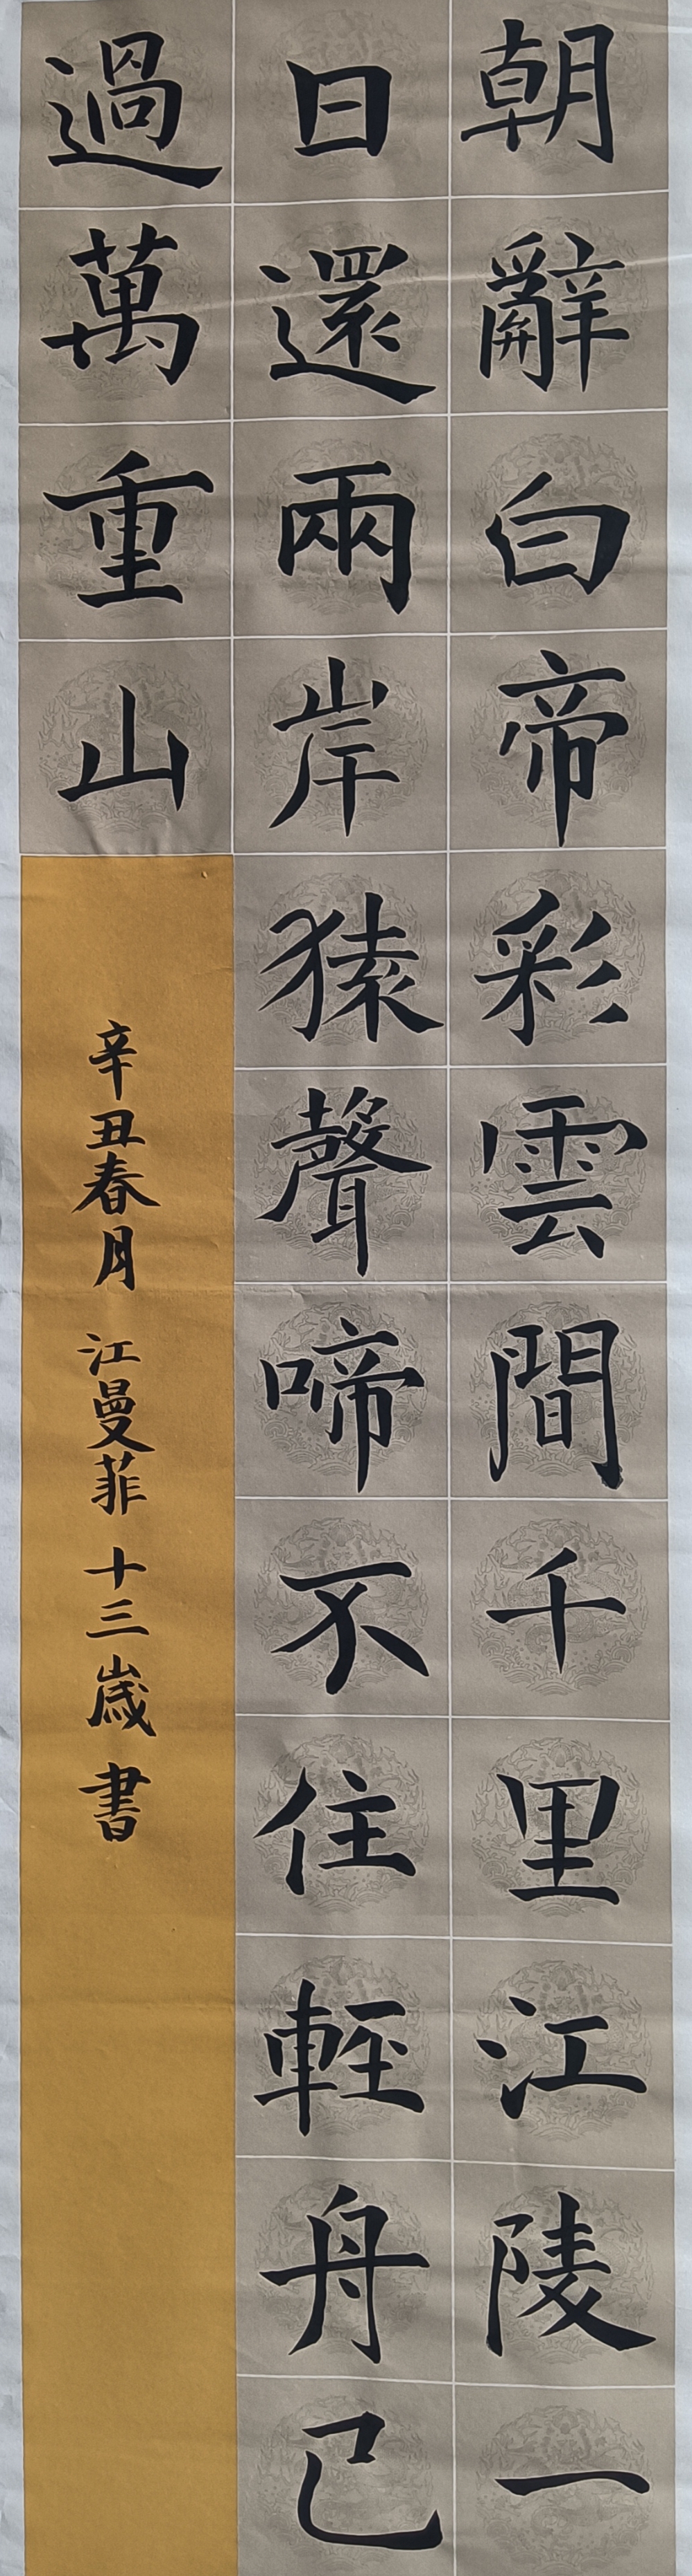 朝辭白帝彩雲間千里江陵一
日還兩岸猿聲啼不住輕舟已
過萬重山
辛丑春月 江曼菲 十三歲 書